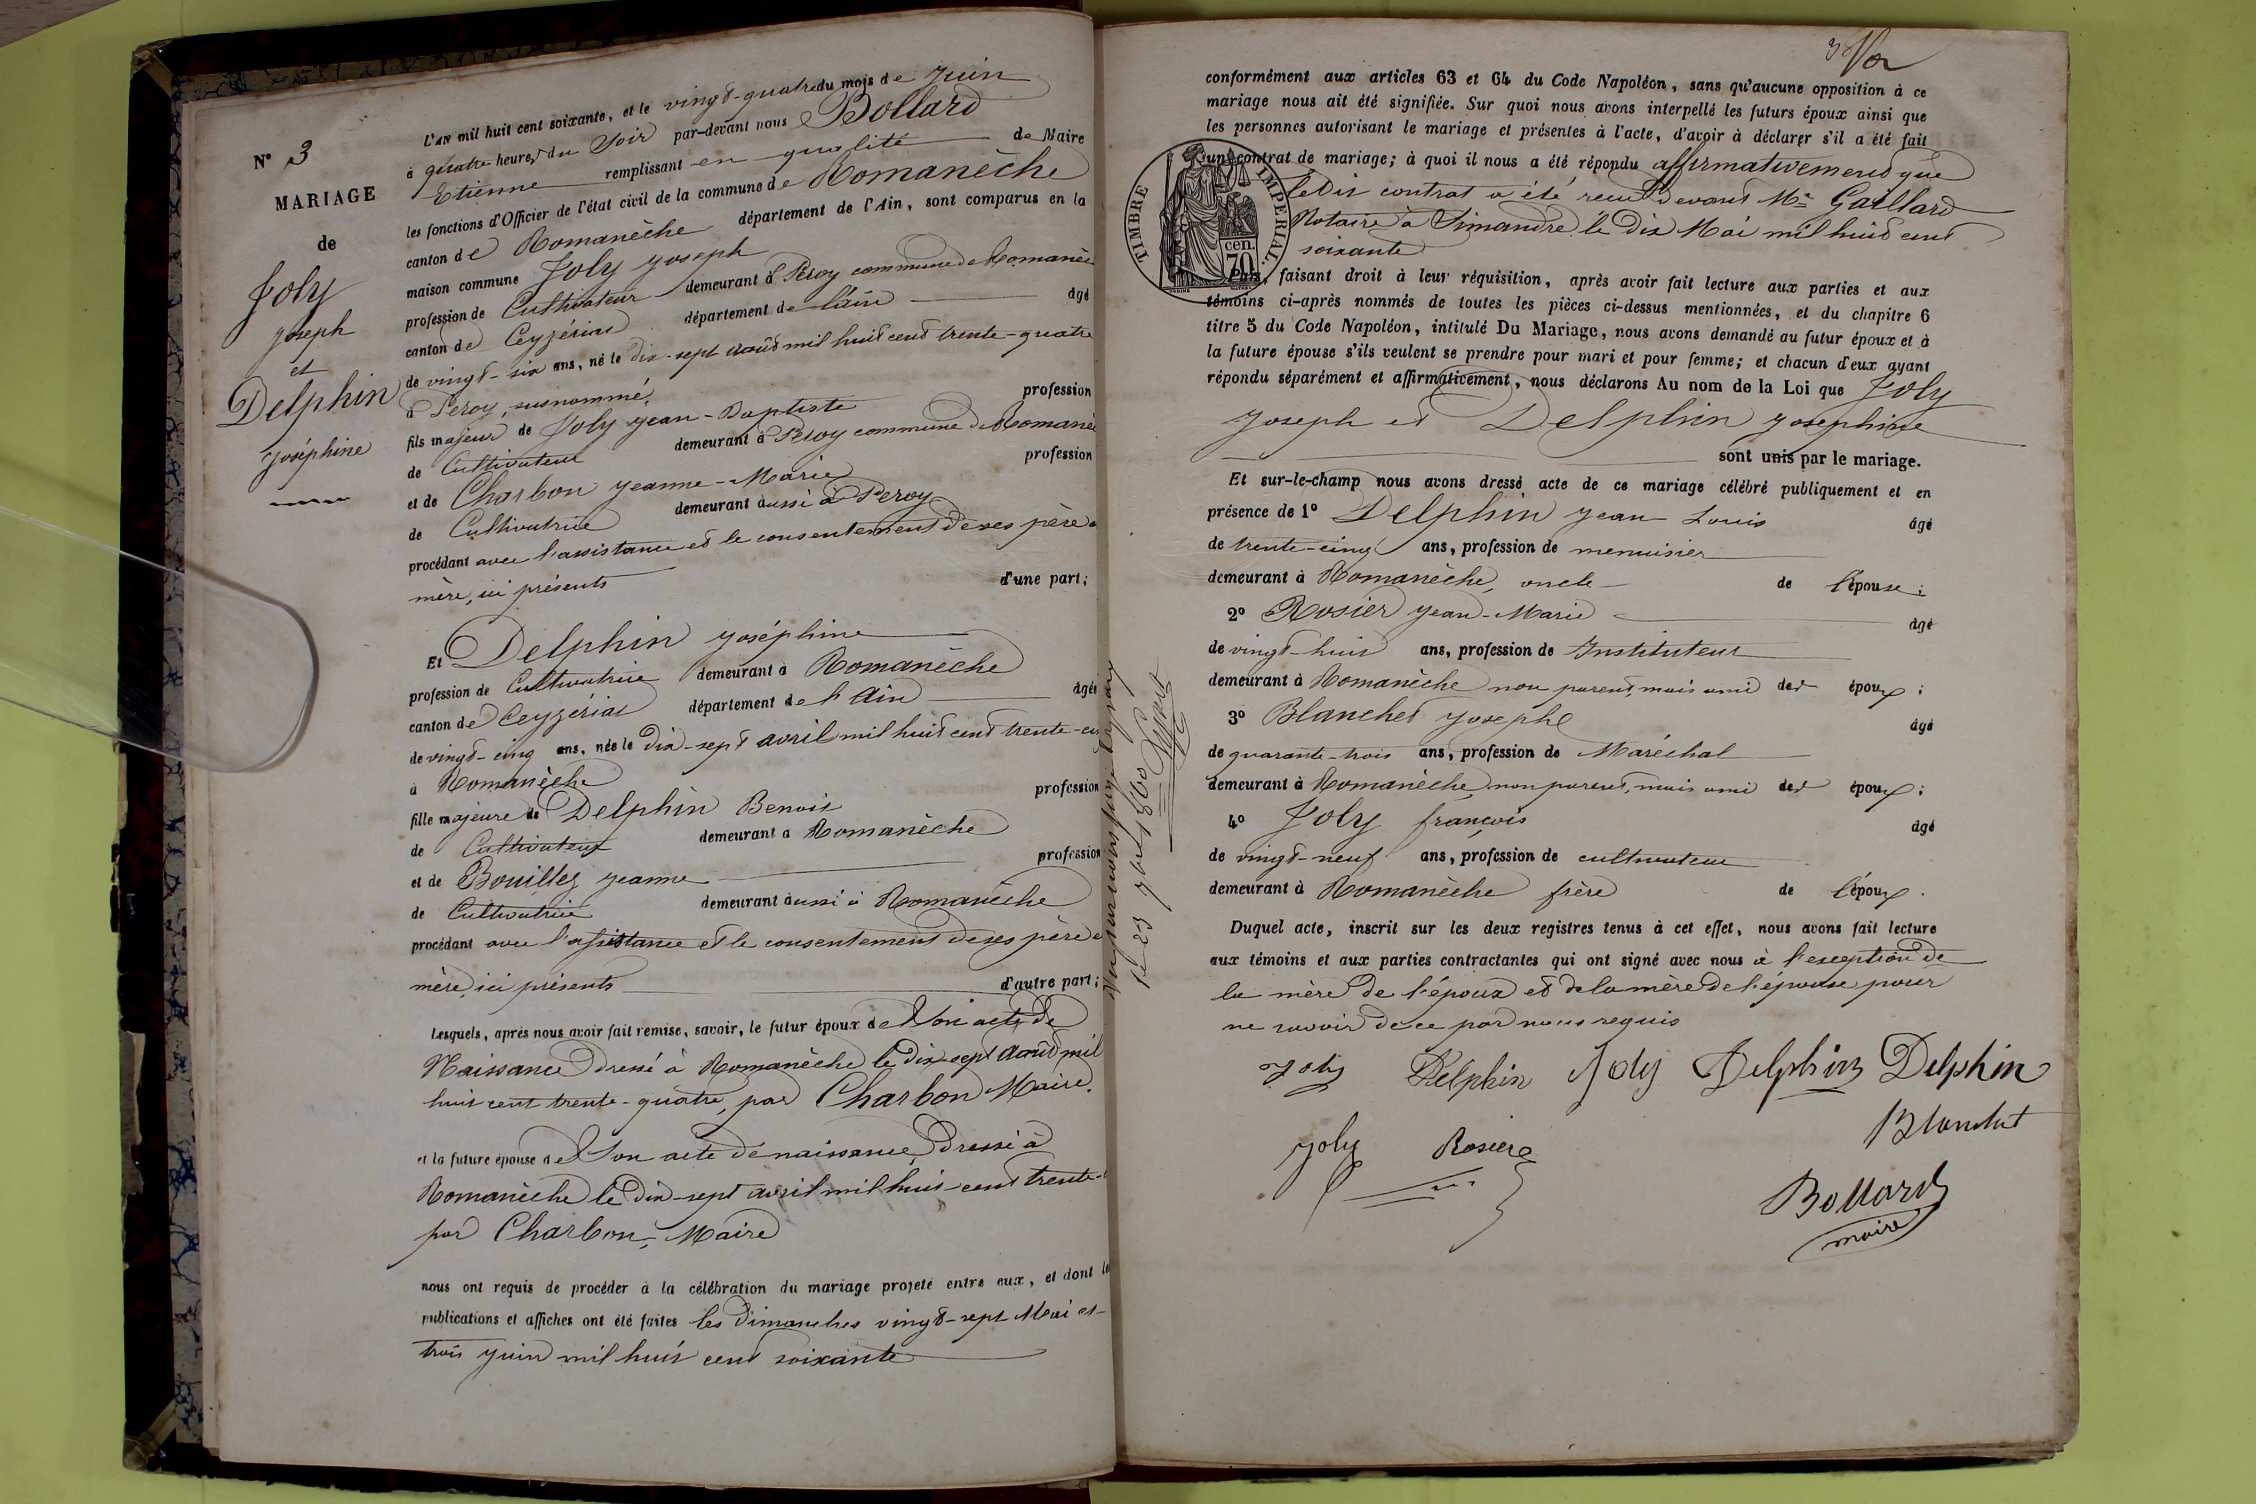 N° 3
MARIAGE
de
Joly
Joseph
et
Delphin
Joséphine
L'AN mil huit cent soixante, et le vingt-quatre du mois de Juin
à quatre heures du Soir par-devant nous Bollard
Etienne remplissant en qualité de Maire
les fonctions d'Officier de l'état civil de la commune de Romanèche
canton de Romanèche département de l'Ain, sont comparus en la
maison commune Joly Joseph
profession de Cultivateur demeurant à Peroy commune de Romanè
canton de Ceyzériat département de l'ain âgé
de vingt-six ans, né le dix-sept août mil huit cent trente-quatre
à Peroy, susnommé,
fils majeur de Joly Jean-Baptiste profession
de Cultivateur demeurant à Peroy commune de Romanè
et de Charbon Jeanne-Marie profession
de Cultivatrice demeurant aussi à Peroy
procédant avec l'assistance et le consentement de ses père et
mère, ici présents d'une part;
Et Delphin Joséphine
profession de Cultivatrice demeurant à Romanèche
canton de Ceyzériat département de l'Ain âgée
de vingt-cinq ans, née le dix-sept avril mil huit cent trente-
à Romanèche
fille majeure de Delphin Benoit profession
de Cultivateur demeurant à Romanèche
et de Bouillez Jeanne profession
de Cultivatrice demeurant aussi à Romanèche
procédant avec l'assistance et le consentement de ses père e
mère, ici présents d'autre part;
Lesquels, après nous avoir fait remise, savoir, le futur époux de Son acte de
Naissance dressé à Romanèche le dix-sept Août mil
huit cent trente-quatre, par Charbon Maire.
et la future épouse de Son acte de naissance, dressé à
Romanèche le dix-sept avril mil huit cent trente-
par Charbon, Maire
nous ont requis de procéder à la célébration du mariage projeté entre eux, et dont le
publications et affiches ont été faites les dimanches vingt-sept Mai et
trois Juin mil huit cent soixante
le 23 7bre 1860
3
conformément aux articles 63 et 64 du Code Napoléon, sans qu'aucune opposition à ce
mariage nous ait été signifiée. Sur quoi nous avons interpellé les futurs époux ainsi que
les personnes autorisant le mariage et présentes à l'acte, d'avoir à déclarer s'il a été fait
un contrat de mariage; à quoi il nous a été répondu affirmativement que
ledit contrat a été reçu devant Me Gaillard
Notaire à Simandre le dix Mai mil huit cent
soixante
TIMBRE IMPERIAL.
cen.
70
Puis, faisant droit à leur réquisition, après avoir fait lecture aux parties et aux
témoins ci-après nommés de toutes les pièces ci-dessus mentionnées, et du chapitre 6
titre 5 du Code Napoléon, intitulé Du Mariage, nous avons demandé au futur époux et à
la future épouse s'ils veulent se prendre pour mari et pour femme; et chacun d'eux ayant
répondu séparément et affirmativement, nous déclarons Au nom de la Loi que Joly
Joseph et Delphin Joséphine
sont unis par le mariage.
Et sur-le-champ nous avons dressé acte de ce mariage célébré publiquement et en
présence de 1° Delphin Jean Louis âgé
de trente-cinq ans, profession de menuisier
demeurant à Romanèche, oncle de l'épouse;
2° Rosier Jean-Marie âgé
de vingt-huit ans, profession de Instituteur
demeurant à Romanèche non parent, mais ami des époux;
3° Blanchet Joseph âgé
de quarante-trois ans, profession de Maréchal
demeurant à Romanèche, non parent, mais ami des époux;
4° Joly françois âgé
de vingt-neuf ans, profession de cultivateur
demeurant à Romanèche frère de l'époux.
Duquel acte, inscrit sur les deux registres tenus à cet effet, nous avons fait lecture
aux témoins et aux parties contractantes qui ont signé avec nous à l'exception de
la mère de l'époux et de la mère de l'épouse pour
ne savoir de ce par nous requis
Joly Delphin Joly Delphin Delphin
Blanchet
Joly Rosier
Bollard
maire